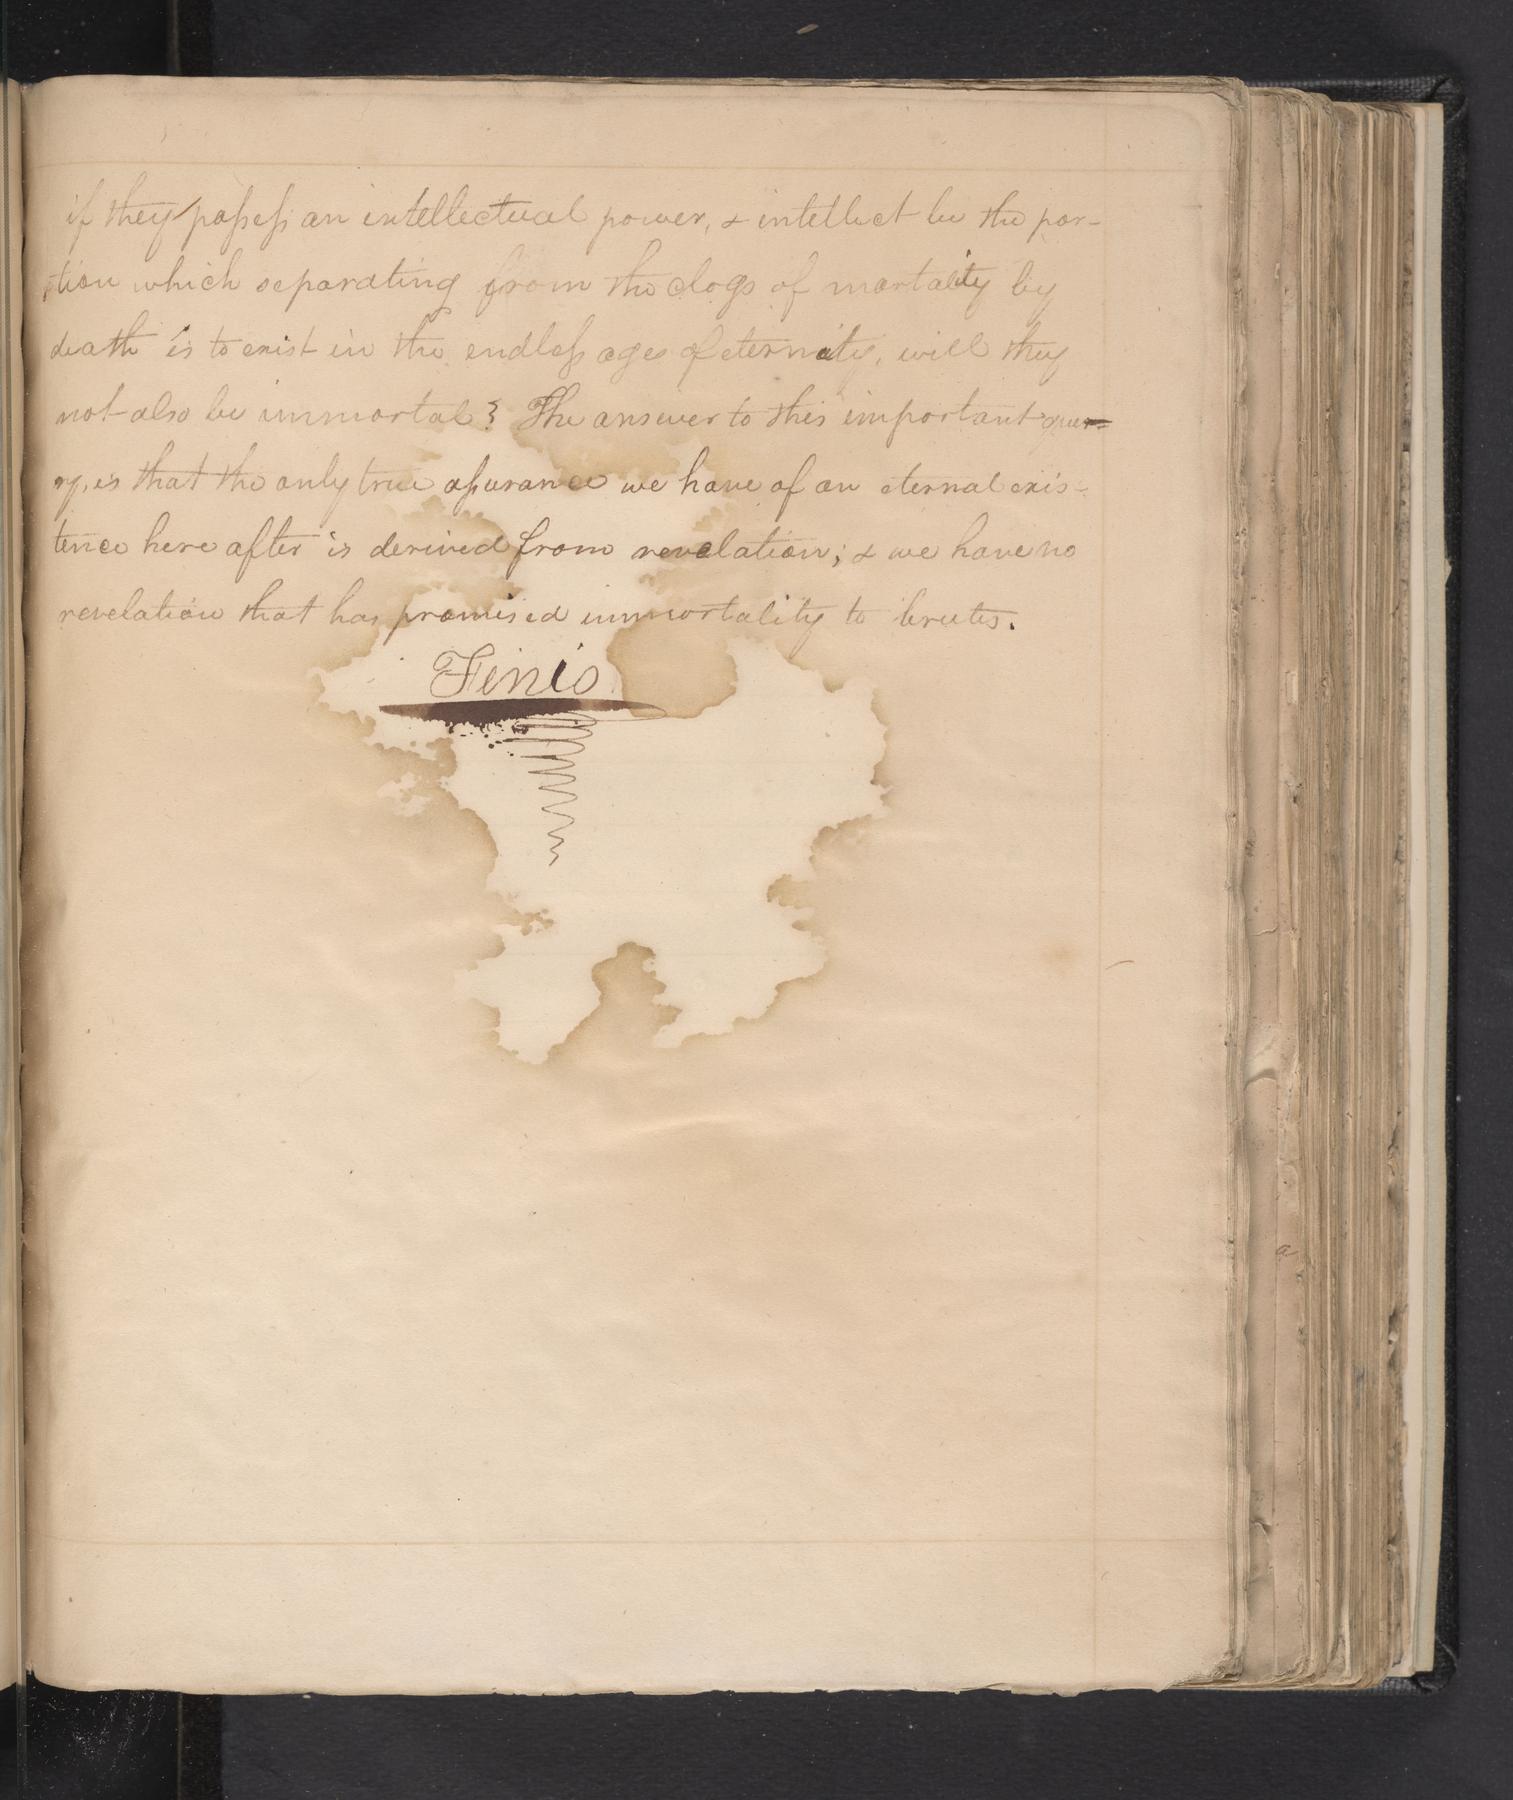 if they possess an intellectual power, & intellect be the por-
tion which separating from the clogs of mortality by
death is to exist in the endless ages of eternity, will they
not also be immortal? The answer to this important que-
ry, is that the only true assurance we have of an eternal exis-
tence here after is derived from revelation; & we have no
revelation that has promised immortality to brutes.
Finis